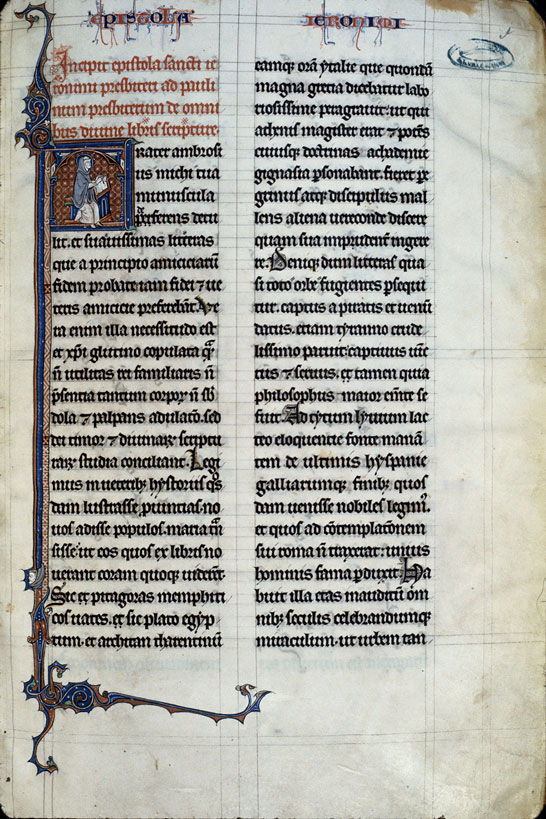 EPISTOLA IERONIMI
Incipit epistola sancti ie
ronimi presbiteri ad pauli
num presbiterum de omni
bus divine libris scripture
Frater ambrosi
us michi tua
munuscula
perferens detu
lit. et suavissimas litteras
que a principio amiciciarum
fidem probate iam fidei ⁊ ve
teris amicicie preferebant. Ve
ra enim illa necessitudo est
et xp̄i glutino copulata qm̄
n̄ utilitas rei familiaris n̄
p̄sentia tantum corpoꝝ n̄ sb̄
dola ⁊ palpans adulatō. sed
dei timor ⁊ divinaꝝ scriptu
raꝝ studia conciliant. Legi
mus in veteribꝫ hystoriis qͦs
dam lustrasse ꝓvincias. no
vos adisse populos. maria tn̄
sisse. ut eos quos ex libris no
verant coram quoqꝫ viderēt.
Sic et pitagoras memphiti
cos vates. et sic plato egyp
tum. et architan tharentinū
eamqꝫ oram ytalie que quondā
magna grecia dicebatur labo
riosissime peragravit. ut qui
athenis magister erat ⁊ potēs
cuiusqꝫ doctrinas achademie
gignasia ꝑsonabant. fieret ꝑe
grinus atqꝫ discipulus mal
lens aliena verecunde discere
quam sua imprudenter ingere
re. Deniqꝫ dum litteras qua
si toto orbe fugientes ꝑsequi
tur. captus a piratis et venū
datus. etiam tyranno crude
lissimo paruit. captivus vinc
tus ⁊ servus. et tamen quia
philosophus maior emēte se
fuit. Ad tytum lyvium lac
teo eloquencie fonte manan
tem de ultimis hyspanie
galliarumqꝫ finibꝫ quos
dam venisse nobiles legim᷒.
et quos ad cōtemplacōnem
sui roma n̄ traxerat. unius
hominis fama ꝑduxit. Ha
buit illa etas inauditum om̄
nibꝫ seculis celebrandumqꝫ
miraculum. ut urbem tan